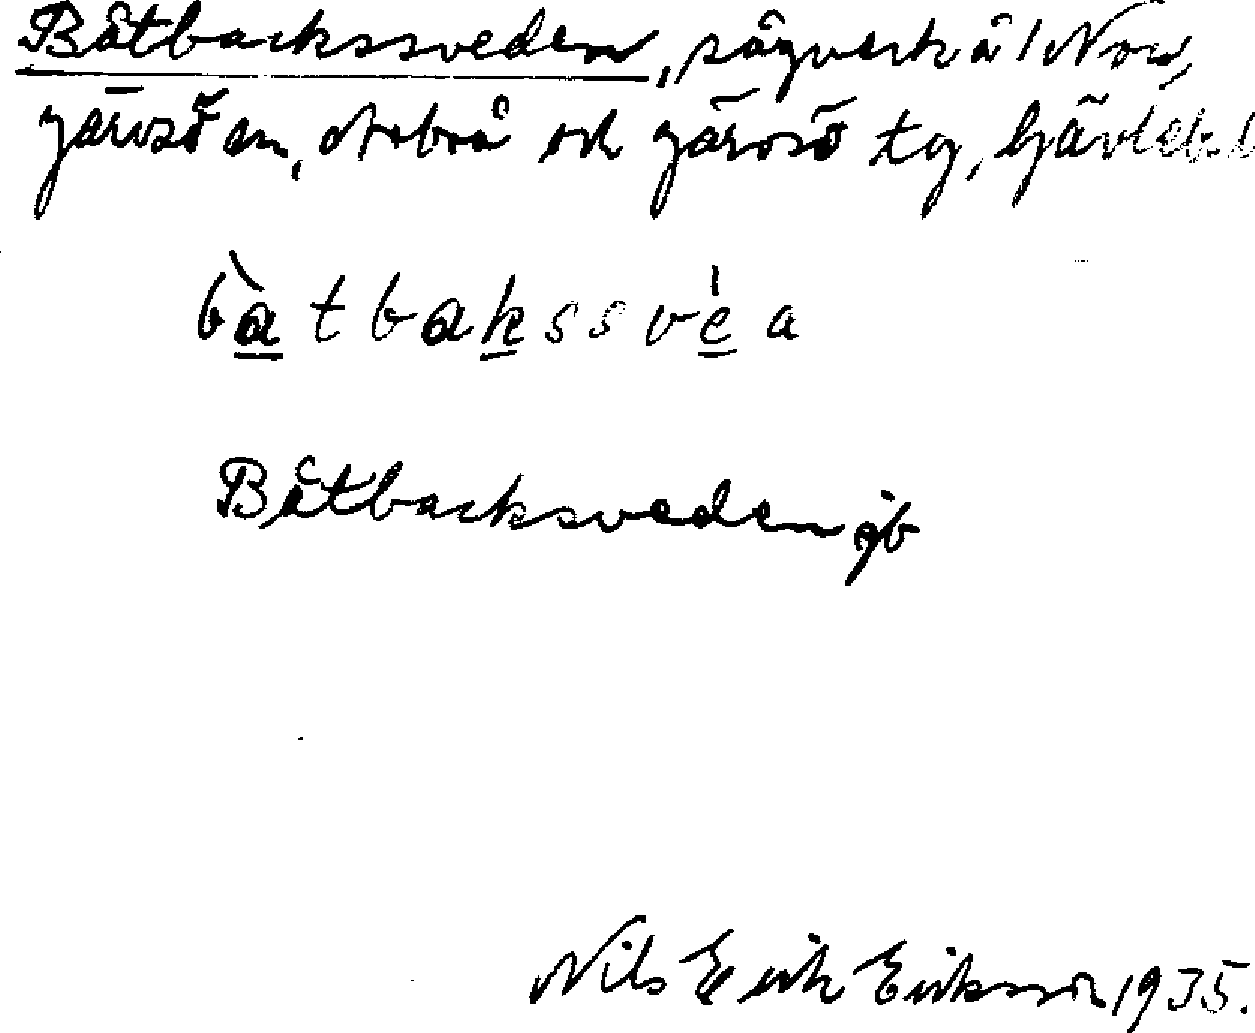 Båtbackssveden, sågverk å 1 Nor,
Järvsö sn, Arbrå och Järvsö tg, Gävlebl
bàtbakssvéa
Båtbacksveden jb
Nils Erik Eriksson 1935.